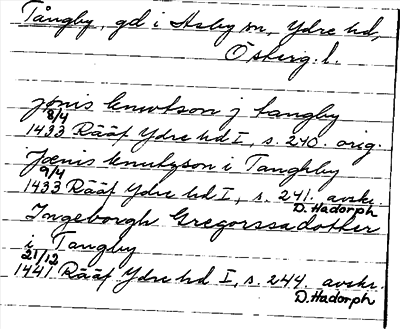 Tångby, gd i Asby sn, Ydre hd,
Österg. l.
jønis knwtson j tangby
8/4
1433 Rääf Ydre hd I, s. 240. orig.
Jøenis knutzson i Tanghby
9/4
1433 Rääf Ydre hd I, s. 241. avskr.
D. Hadorph
Ingeborgh Gregorssadotther
i Tangby
21/12
1441 Rääf Ydre hd I, s. 244. avskr.
D. Hadorph